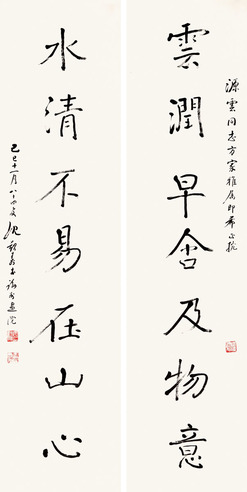 源雲同志方家雅属即希正掔
雲潤早含及物意
水清不易在山心
己巳十一月八十四叟